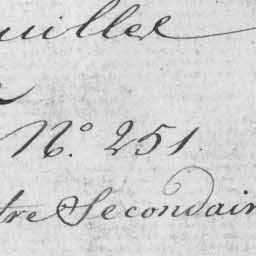 uillet
N.º 251.
tre Secondair